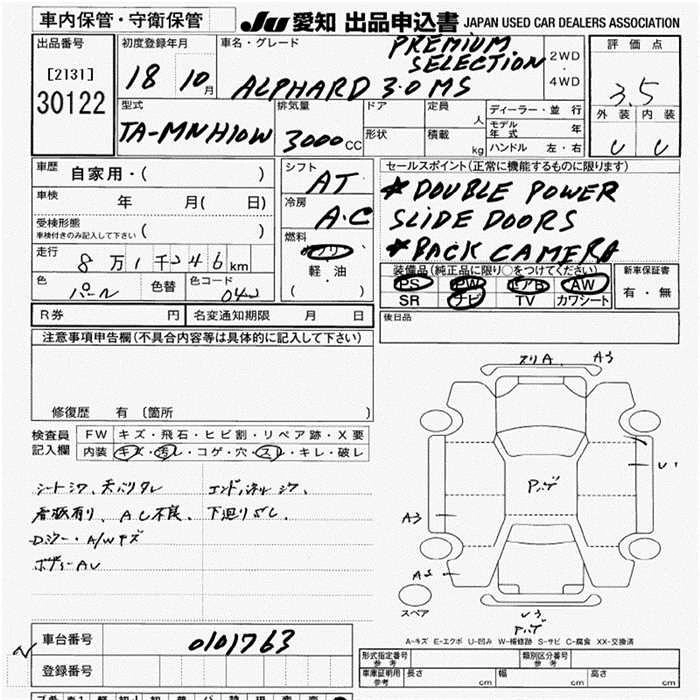 車内保管・守衛保管
JU 愛知 出品申込書 JAPAN USED CAR DEALERS ASSOCIATION
出品番号
[2131]
30122
初度登録年月
18 10月
車名・グレード
PREMIUM
SELECTION
ALPHARD 3.0 MS
2WD
・
4WD
評価点
3.5
外装 内装
U U
型式
TA-MNH10W
排気量
3000cc
ドア
形状
定員
人
積載
kg
ディーラー・並行
モデル年式 年
ハンドル 左・右
車歴
自家用・( )
車検
年 月( 日)
受検形態
車検付きのみ記入して下さい
( )
走行
8万1千246km
色
パール
色替
色コード
042
シフト
AT
冷房
A・C
燃料
ガソリン
軽・油
( )
セールスポイント(正常に機能するものに限ります)
*DOUBLE POWER
SLIDE DOORS
*BACK CAMERA
装備品(純正品に限り○をつけてください)
PS PW エアB AW
SR ナビ TV カワシート
新車保証書
有・無
R券 円
名変通知期限 月 日
後日品
注意事項申告欄(不具合内容等は具体的に記入して下さい)
修復歴 有 〔箇所 〕
検査員
記入欄
FW キズ・飛石・ヒビ割・リペア跡・X要
内装 キズ・汚レ・コゲ・穴・スレ・キレ・破レ
シートシワ、天バリタレ
エンドパネルシワ、
看板有り、AC不良、下廻りサビ、
Dミラー・A/Wキズ
ボディーAU
A3
A3
U1
A3
U3
スペア
A-キズ E-エクボ U-凹み W-補修跡 S-サビ C-腐食 XX-交換済
車台番号
0101763
登録番号
型式指定番号
参考
類別区分番号
参考
車庫証明用
参考
長さ cm
幅 cm
高さ cm